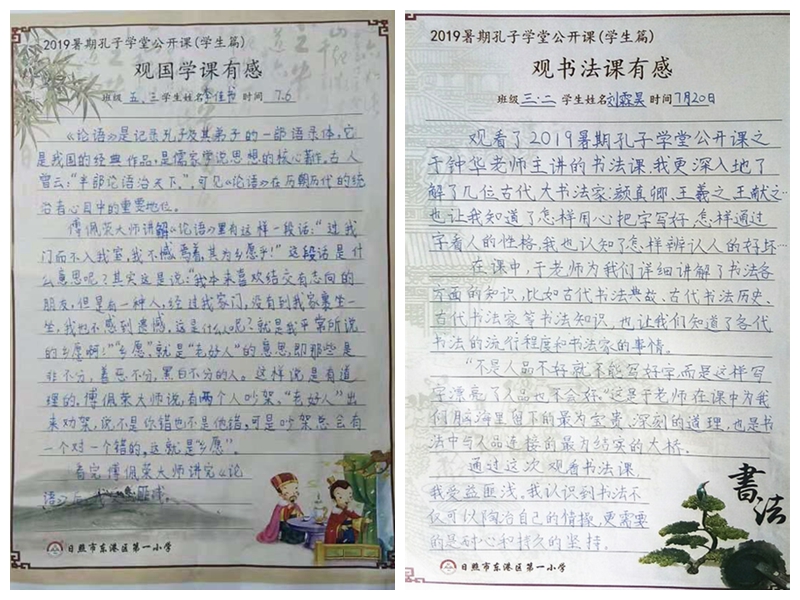 2019暑期孔子学堂公开课(学生篇)
观国学课有感
班级 五.三 学生姓名 李佳书 时间 7.6
《论语》是记录孔子及其弟子的一部语录体,它
是我国的经典作品,是儒家学说思想的核心著作,古人
曾云:“半部论语治天下。”,可见《论语》在历朝历代的统
治者心目中的重要地位。
傅佩荣大师讲解《论语》里有这样一段话:“过我
门而不入我室,我不憾焉者,其为乡愿乎!”这段话是什
么意思呢?其实这是说:“我本来喜欢结交有志向的
朋友,但是有一种人,经过我家门,没有到我家里坐一
坐,我也不感到遗憾,这是什么人呢?就是我平常所说
的乡愿啊!”“乡愿”,就是“老好人”的意思,即那些是
非不分,善恶不分,黑白不分的人。这样说是有道
理的,傅佩荣大师说,有两个人吵架,“老好人”出
来劝架,说不是你错也不是他错,可是吵架总会有
一个对一个错的,这就是“乡愿”。
看完傅佩荣大师讲完《论
语》后,匪浅。
日照市东港区第一小学
2019暑期孔子学堂公开课(学生篇)
观书法课有感
班级 三.二 学生姓名 刘霖昊 时间 7月20日
观看了2019暑期孔子学堂公开课之
于钟华老师主讲的书法课,我更深入地了
解了几位古代大书法家:颜真卿、王羲之、王献之…
也让我知道了怎样用心把字写好,怎样通过
字看人的性格,我也认知了怎样辨认人的好坏…
在课中,于老师为我们详细讲解了书法各
方面的知识,比如古代书法典故、古代书法历史、
古代书法家等书法知识,也让我们知道了各代
书法的流行程度和书法家的事情。
“不是人品不好就不能写好字,而是这样写
字漂亮了人品也不会好。”这是于老师在课中为我
们脑海里留下的最为宝贵、深刻的道理,也是书
法中与人品连接的最为结实的大桥。
通过这次观看书法课
我受益匪浅,我认识到书法不
仅可以陶冶自己的情操,更需要
的是耐心和持久的坚持。
書法
日照市东港区第一小学